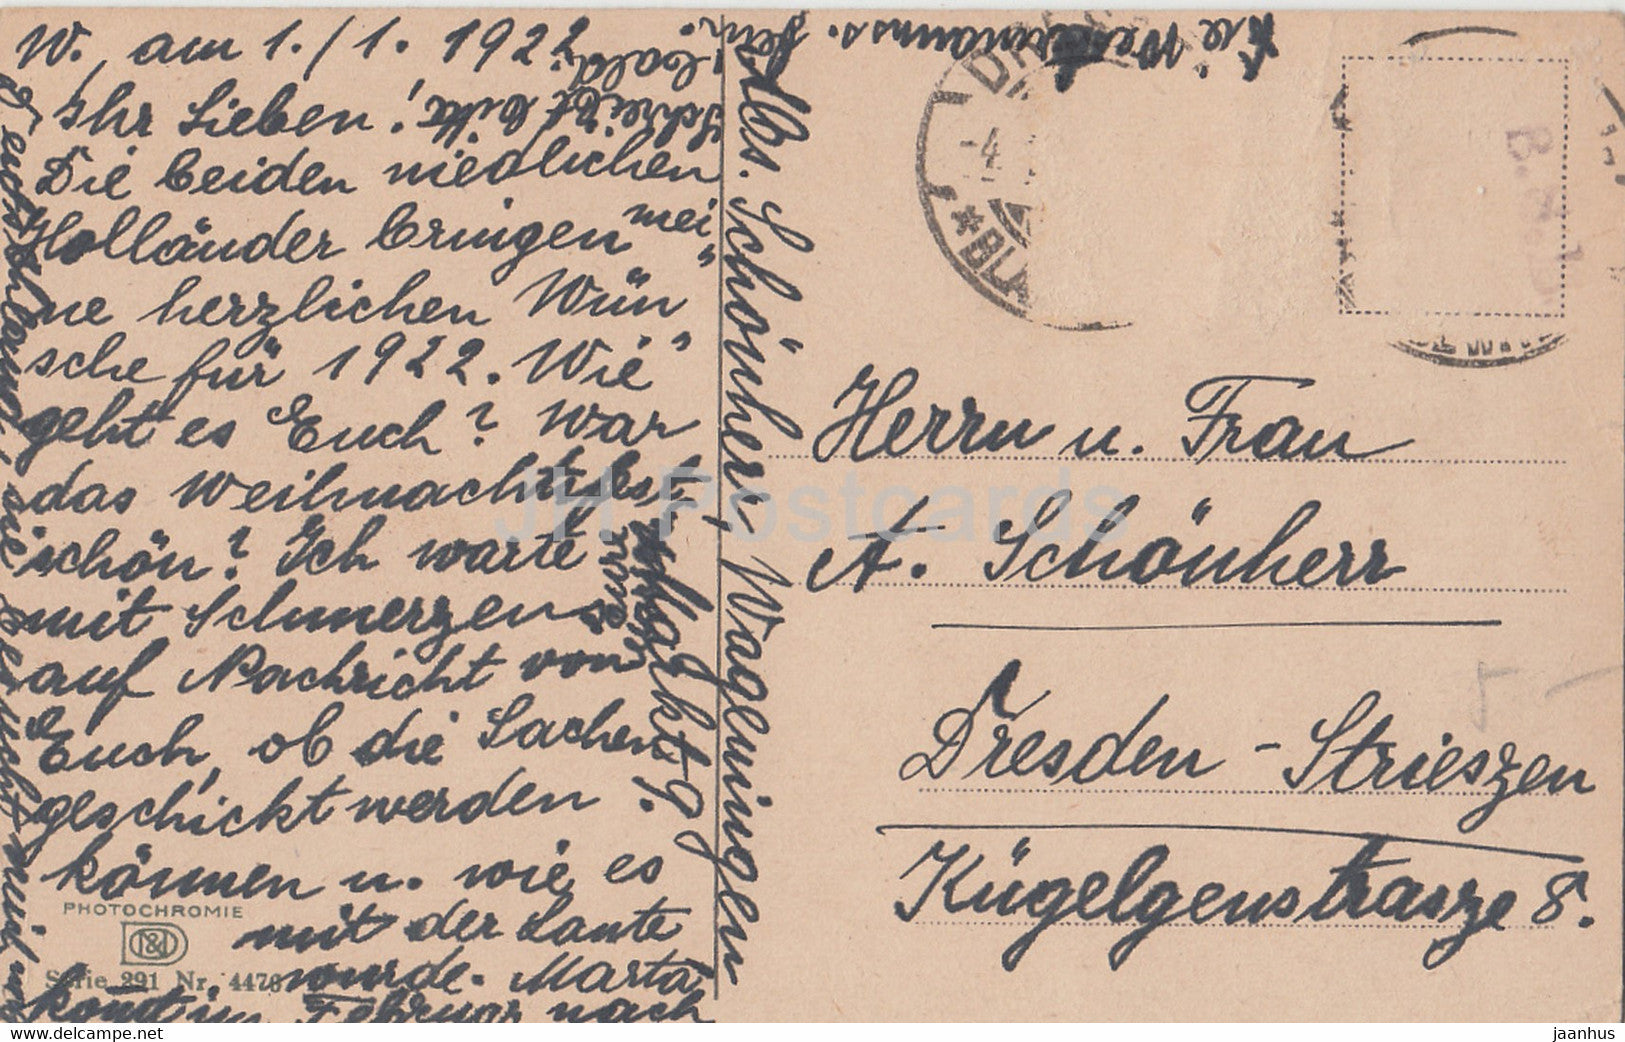 W. am 1./1. 1922
Ihr Lieben!
Die beiden niedlichen
Holländer bringen mei"
ne herzlichen Wün"
sche für 1922. Wie
geht es Euch? War
das Weihnachtsfest
schön? Ich warte
mit Schmerzen
auf Nachricht von
Euch, ob die Sachen
geschickt werden
können u. wie es
mit der Laute
wurde. Marta
kommt im Februar nach
Deutschland, sie
Schreibt bitte
bald!
Abs. Schönherr, Wageningen
Herrn u. Frau
A. Schönherr
Dresden-Strieszen
Kügelgenstrasze 8.
PHOTOCHROMIE
Serie 291 Nr. 4476
-4.
*BLA
JH Postcards
www.hippostcard.com
jaanhus